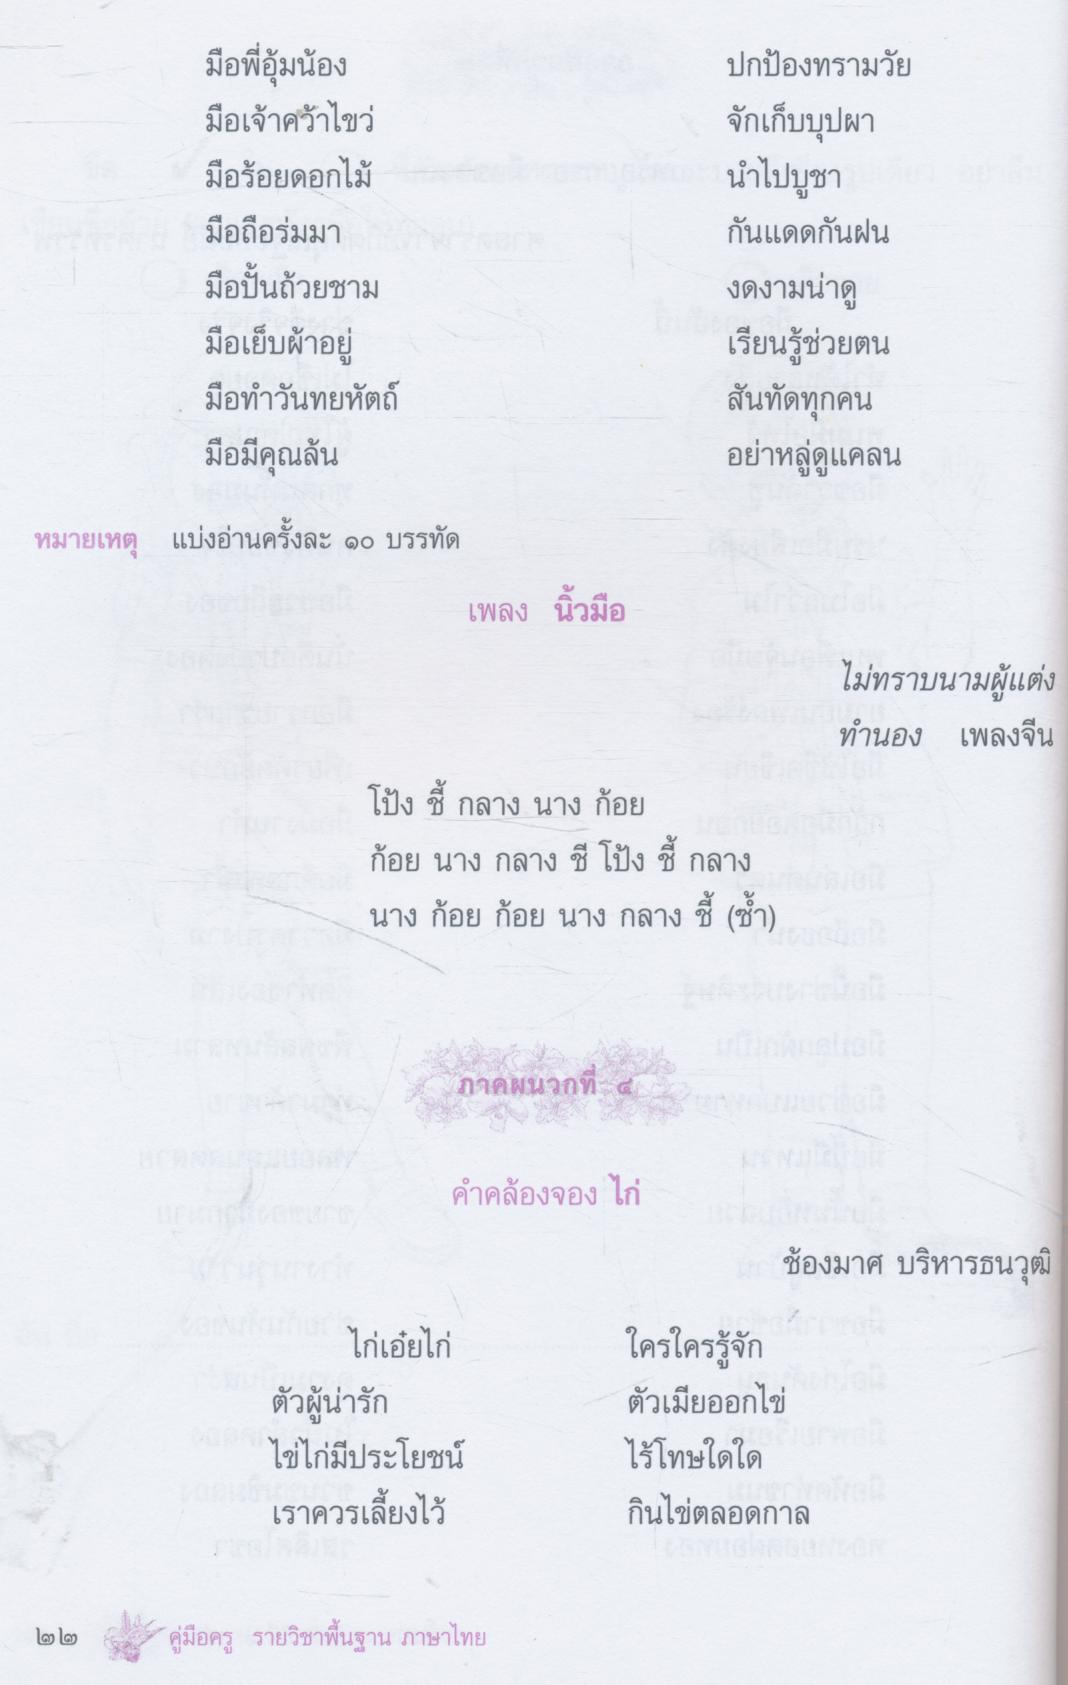 มือพี่อุ้มน้อง ปกป้องทรามวัย
มือเจ้าคว้าไขว่ จักเก็บบุปผา
มือร้อยดอกไม้ นำไปบูชา
มือถือร่มมา กันแดดกันฝน
มือปั้นถ้วยชาม งดงามน่าดู
มือเย็บผ้าอยู่ เรียนรู้ช่วยตน
มือทำวันทยหัตถ์ สันทัดทุกคน
มือมีคุณล้น อย่าหลู่ดูแคลน
หมายเหตุ แบ่งอ่านครั้งละ ๑๐ บรรทัด
เพลง นิ้วมือ
ไม่ทราบนามผู้แต่ง
ทำนอง เพลงจีน
โป้ง ชี้ กลาง นาง ก้อย
ก้อย นาง กลาง ชี โป้ง ชี้ กลาง
นาง ก้อย ก้อย นาง กลาง ชี้ (ซ้ำ)
ภาคผนวกที่ ๔
คำคล้องจอง ไก่
ช้องมาศ บริหารธนวุฒิ
ไก่เอ๋ยไก่ ใครใครรู้จัก
ตัวผู้น่ารัก ตัวเมียออกไข่
ไข่ไก่มีประโยชน์ ไร้โทษใดใด
เราควรเลี้ยงไว้ กินไข่ตลอดกาล
๒๒ คู่มือครู รายวิชาพื้นฐาน ภาษาไทย